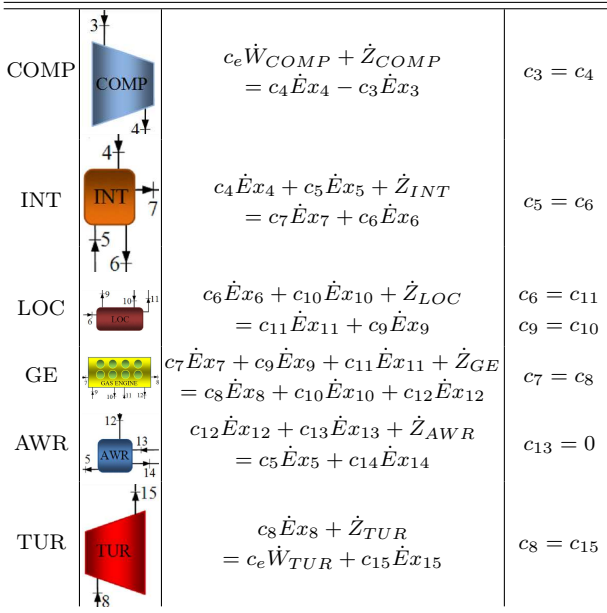 3
COMP
COMP
4
c_e Ẇ_COMP + Ż_COMP
= c_4 Ėx_4 − c_3 Ėx_3
c_3 = c_4
4
INT
INT
7
5
6
c_4 Ėx_4 + c_5 Ėx_5 + Ż_INT
= c_7 Ėx_7 + c_6 Ėx_6
c_5 = c_6
9
10
11
6
LOC
LOC
c_6 Ėx_6 + c_10 Ėx_10 + Ż_LOC
= c_11 Ėx_11 + c_9 Ėx_9
c_6 = c_11
c_9 = c_10
GE
GAS ENGINE
7
8
9
10
11
12
c_7 Ėx_7 + c_9 Ėx_9 + c_11 Ėx_11 + Ż_GE
= c_8 Ėx_8 + c_10 Ėx_10 + c_12 Ėx_12
c_7 = c_8
12
AWR
AWR
13
5
14
c_12 Ėx_12 + c_13 Ėx_13 + Ż_AWR
= c_5 Ėx_5 + c_14 Ėx_14
c_13 = 0
15
TUR
TUR
8
c_8 Ėx_8 + Ż_TUR
= c_e Ẇ_TUR + c_15 Ėx_15
c_8 = c_15